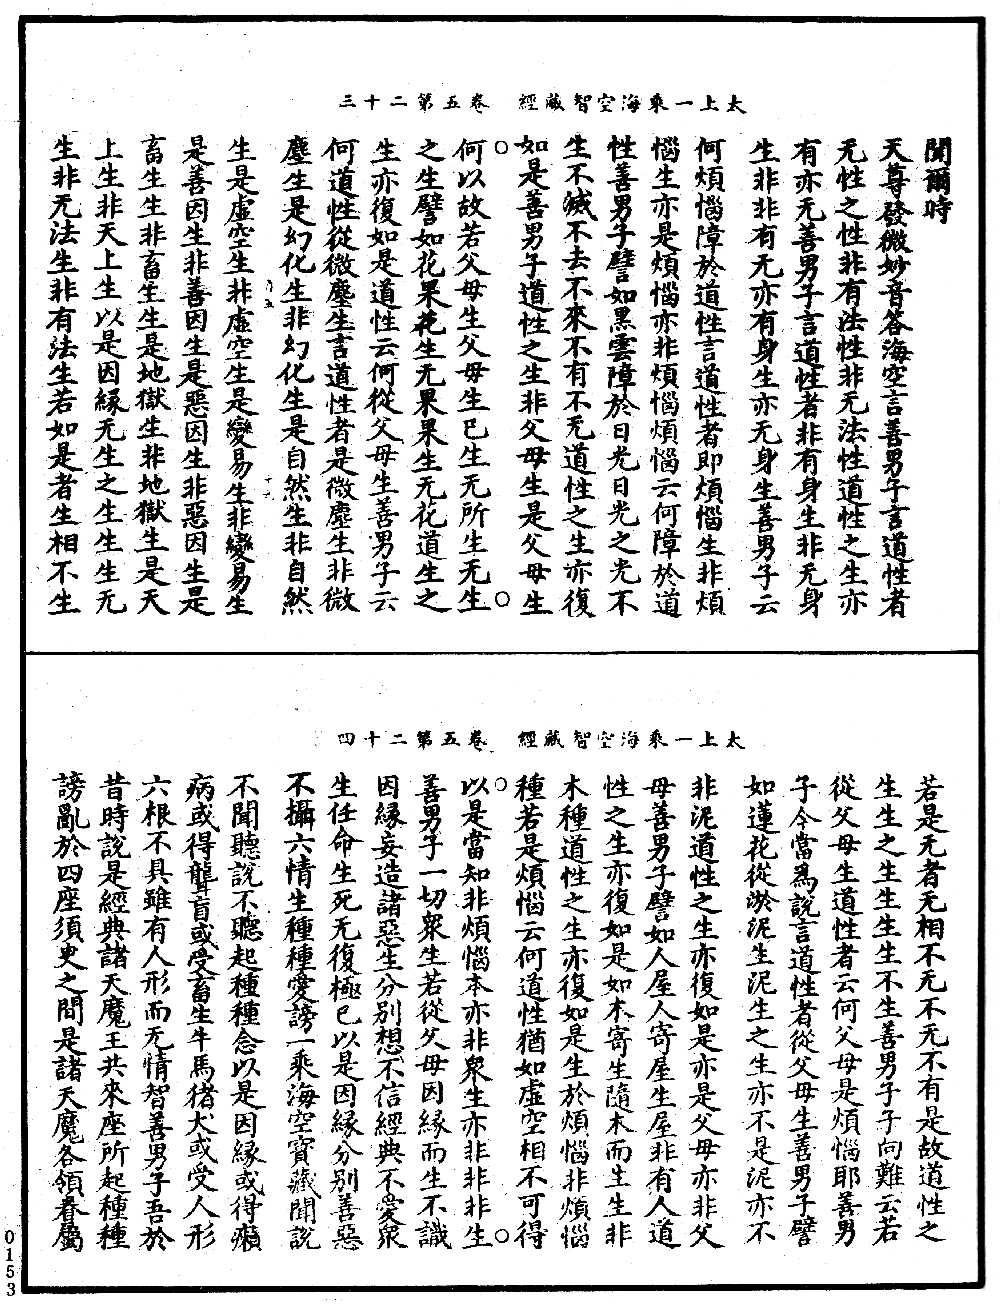 太上一乘海空智藏經　卷五第二十三
聞爾時
天尊發微妙音答海空言善男子言道性者
无性之性非有法性非无法性道性之生亦
有亦无善男子言道性者非有身生非无身
生非非有无亦有身生亦无身生善男子云
何煩惱障於道性言道性者即煩惱生非煩
惱生亦是煩惱亦非煩惱煩惱云何障於道
性善男子譬如黑雲障於日光日光之光不
生不滅不去不來不有不无道性之生亦復
如是善男子道性之生非父母生是父母生
何以故若父母生父母生已生无所生无生
之生譬如花果花生无果果生无花道生之
生亦復如是道性云何從父母生善男子云
何道性從微塵生言道性者是微塵生非微
塵生是幻化生非幻化生是自然生非自然
生是虛空生非虛空生是變易生非變易生
是善因生非善因生是惡因生非惡因生是
畜生生非畜生生是地獄生非地獄生是天
上生非天上生以是因緣无生之生生生无
生非无法生非有法生若如是者生相不生
太上一乘海空智藏經　卷五第二十四
若是无者无相不无不无不有是故道性之
生生之生生生生不生善男子子向難云若
從父母生道性者云何父母是煩惱耶善男
子今當為說言道性者從父母生善男子譬
如蓮花從淤泥生泥生之生亦不是泥亦不
非泥道性之生亦復如是亦是父母亦非父
母善男子譬如人屋人寄屋生屋非有人道
性之生亦復如是如木寄生隨木而生生非
木種道性之生亦復如是生於煩惱非煩惱
種若是煩惱云何道性猶如虛空相不可得
以是當知非煩惱本亦非衆生亦非非非生
善男子一切衆生若從父母因緣而生不識
因緣妄造諸惡生分別想不信經典不愛衆
生任命生死无復極已以是因緣分別善惡
不攝六情生種種愛謗一乘海空寶藏聞說
不聞聽說不聽起種種念以是因緣或得癩
病或得聾盲或受畜生牛馬猪犬或受人形
六根不具雖有人形而无情智善男子吾於
昔時說是經典諸天魔王共來座所起種種
謗亂於四座須臾之間是諸天魔各領眷屬
0153